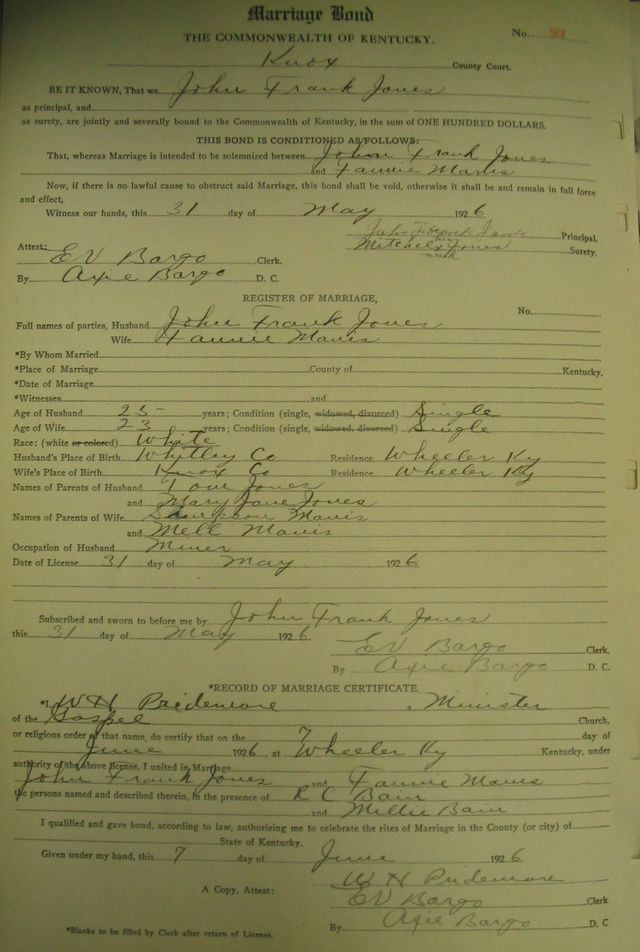 Marriage Bond
THE COMMONWEALTH OF KENTUCKY.
No. 92
Knox County Court.
BE IT KNOWN, That we John Frank Jones
as principal, and
as surety, are jointly and severally bound to the Commonwealth of Kentucky, in the sum of ONE HUNDRED DOLLARS.
THIS BOND IS CONDITIONED AS FOLLOWS:
That, whereas Marriage is intended to be solemnized between John Frank Jones
and Fannie Mavis
Now, if there is no lawful cause to obstruct said Marriage, this bond shall be void, otherwise it shall be and remain in full force
and effect,
Witness our hands, this 31 day of May 1926
John Frank Jones Principal,
Mitchel his x mark Jones Surety.
Attest: EV Bargo Clerk.
By Axie Bargo D. C.
REGISTER OF MARRIAGE,
No.
Full names of parties, Husband John Frank Jones
Wife Fannie Mavis
*By Whom Married
*Place of Marriage County of Kentucky,
*Date of Marriage
*Witnesses and
Age of Husband 25 years; Condition (single, widowed, divorced) Single
Age of Wife 23 years; Condition (single, widowed, divorced) Single
Race: (white or colored) White
Husband's Place of Birth Whitley Co Residence Wheeler Ky
Wife's Place of Birth Knox Co Residence Wheeler Ky
Names of Parents of Husband Tom Jones
and Mary Jane Jones
Names of Parents of Wife Sampson Mavis
and Mell Mavis
Occupation of Husband Miner
Date of License 31 day of May 1926
Subscribed and sworn to before me by John Frank Jones
this 31 day of May 1926
EV Bargo Clerk.
By Axie Bargo D. C.
*RECORD OF MARRIAGE CERTIFICATE,
*I, W H Pridemore, Minister
of the Gospel Church,
or religious order of that name, do certify that on the 7 day of
June 1926, at Wheeler Ky Kentucky, under
authority of the above license, I united in Marriage
John Frank Jones and Fannie Mavis
the persons named and described therein, in the presence of R C Bain
and Millie Bain
I qualified and gave bond, according to law, authorizing me to celebrate the rites of Marriage in the County (or city) of
State of Kentucky.
Given under my hand, this 7 day of June 1926
W H Pridemore
A Copy, Attest: EV Bargo Clerk
By Axie Bargo D. C
*Blanks to be filled by Clerk after return of License.